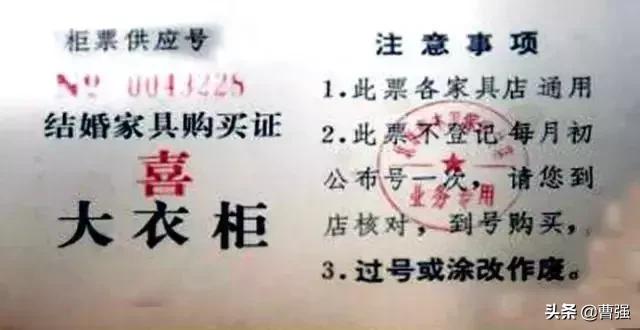 柜票供应号
№ 0043228
结婚家具购买证
喜
大衣柜
注意事项
1.此票各家具店通用
2.此票不登记每月初
公布号一次，请您到
店核对，到号购买，
3.过号或涂改作废。
业务专用
头条@曹强